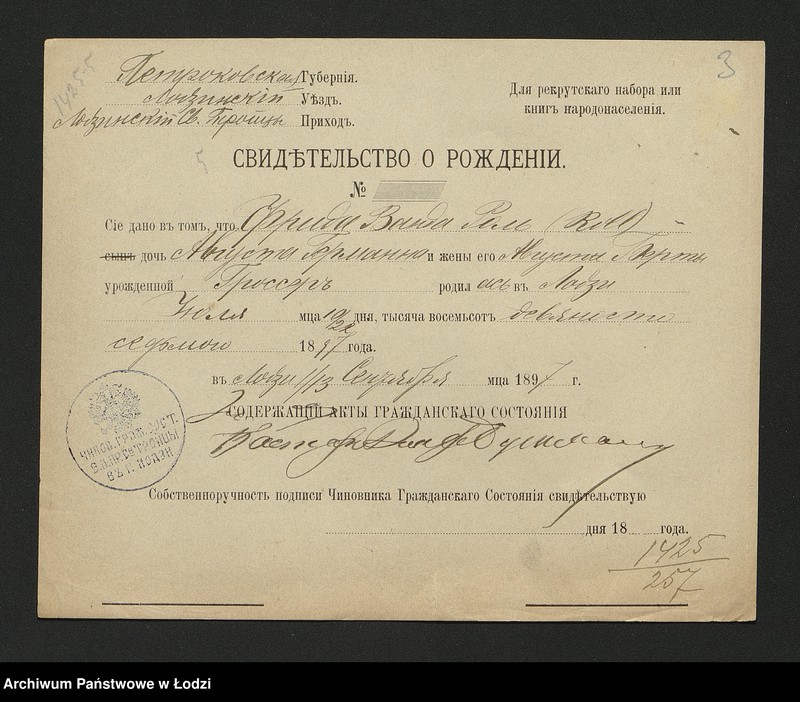 1425-5
3
Петроковская Губернія.
Лодзинскій Уѣздъ.
Лодзинскій Св. Троицы Приходъ.
Для рекрутскаго набора или
книгъ народонаселенія.
5
СВИДѢТЕЛЬСТВО О РОЖДЕНІИ.
№
Сіе дано въ томъ, что Фрида Ванда Роль (Roll)
сынъ дочь Августа Германна и жены его Августы Берты
урожденной Гроссеръ родилась въ Лодзи
Іюля 10/22 мца дня, тысяча восемьсотъ девяносто
седьмого 1897 года.
въ Лодзи 1/13 Сентября мца 1897 г.
СОДЕРЖАЩІЙ АКТЫ ГРАЖДАНСКАГО СОСТОЯНІЯ
Пасторъ
ЧИНОВ. ГРАЖ. СОСТ.
ЕВАНГ. СВ. ТРОИЦЫ
ВЪ Г. ЛОДЗИ
Собственноручность подписи Чиновника Гражданскаго Состоянія свидѣтельствую
дня 18 года.
1425
257
Archiwum Państwowe w Łodzi